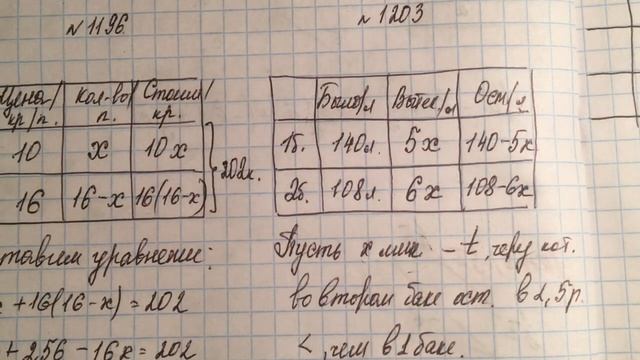 N 1196.
Цена/ Кол-во/ Стоим/
кр/п. п. кр.
10 x 10x
16 16-x 16(16-x)
} 202к.
ставим уравнение:
x +16(16-x) = 202
+ 2,56 - 16x = 202
N 1203
Было/л Вытек/л Ост/л
1б. 140л. 5x 140-5x
2б. 108л. 6x 108-6x
Пусть x мин - t, через кот.
во втором баке ост. в 2,5 р.
<, чем в 1 баке.